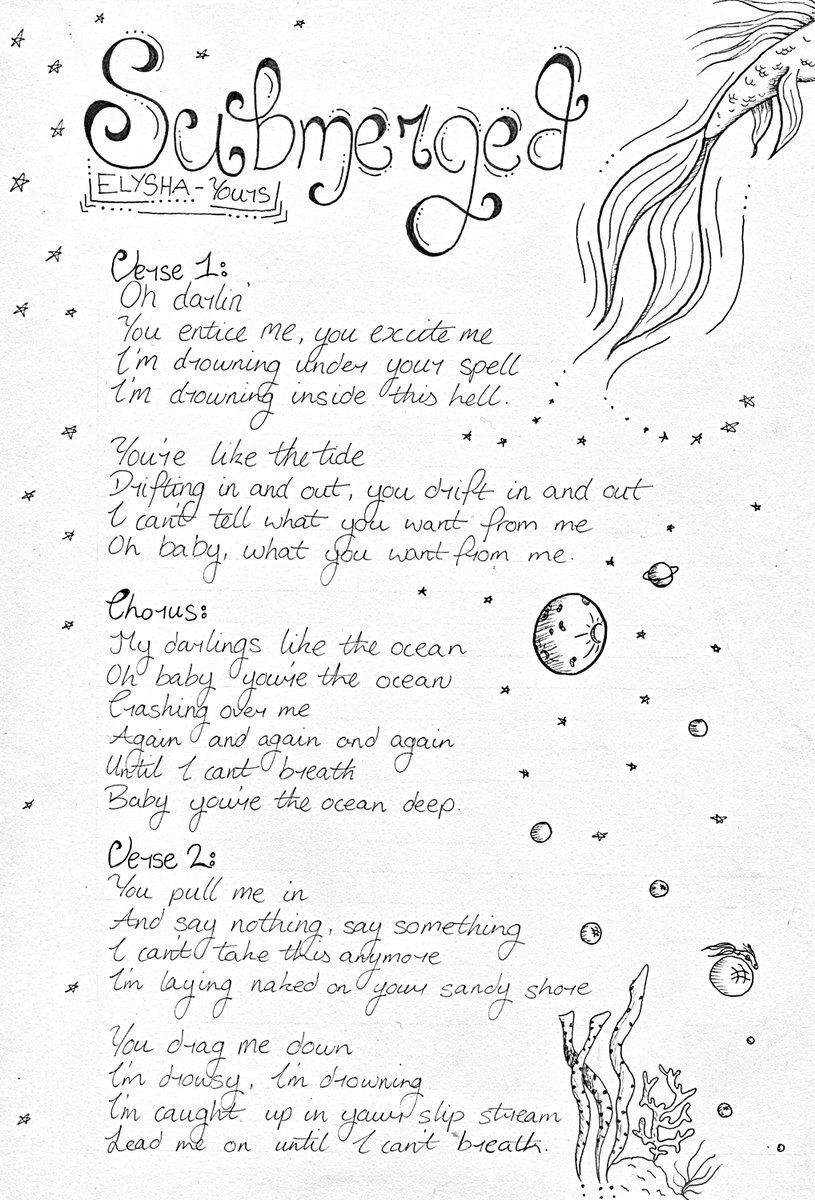 Submerged
ELYSHA - Yours
Verse 1:
Oh darlin'
You entice me, you excite me
I'm drowning under your spell
I'm drowning inside this hell.
You're like the tide
Drifting in and out, you drift in and out
I can't tell what you want from me
Oh baby, what you want from me.
Chorus:
My darlings like the ocean
Oh baby you're the ocean
Crashing over me
Again and again and again
Until I cant breath
Baby you're the ocean deep.
Verse 2:
You pull me in
And say nothing, say something
I can't take this anymore
I'm laying naked on your sandy shore
You drag me down
I'm drowsy, I'm drowning
I'm caught up in your slip stream
Lead me on until I can't breath.